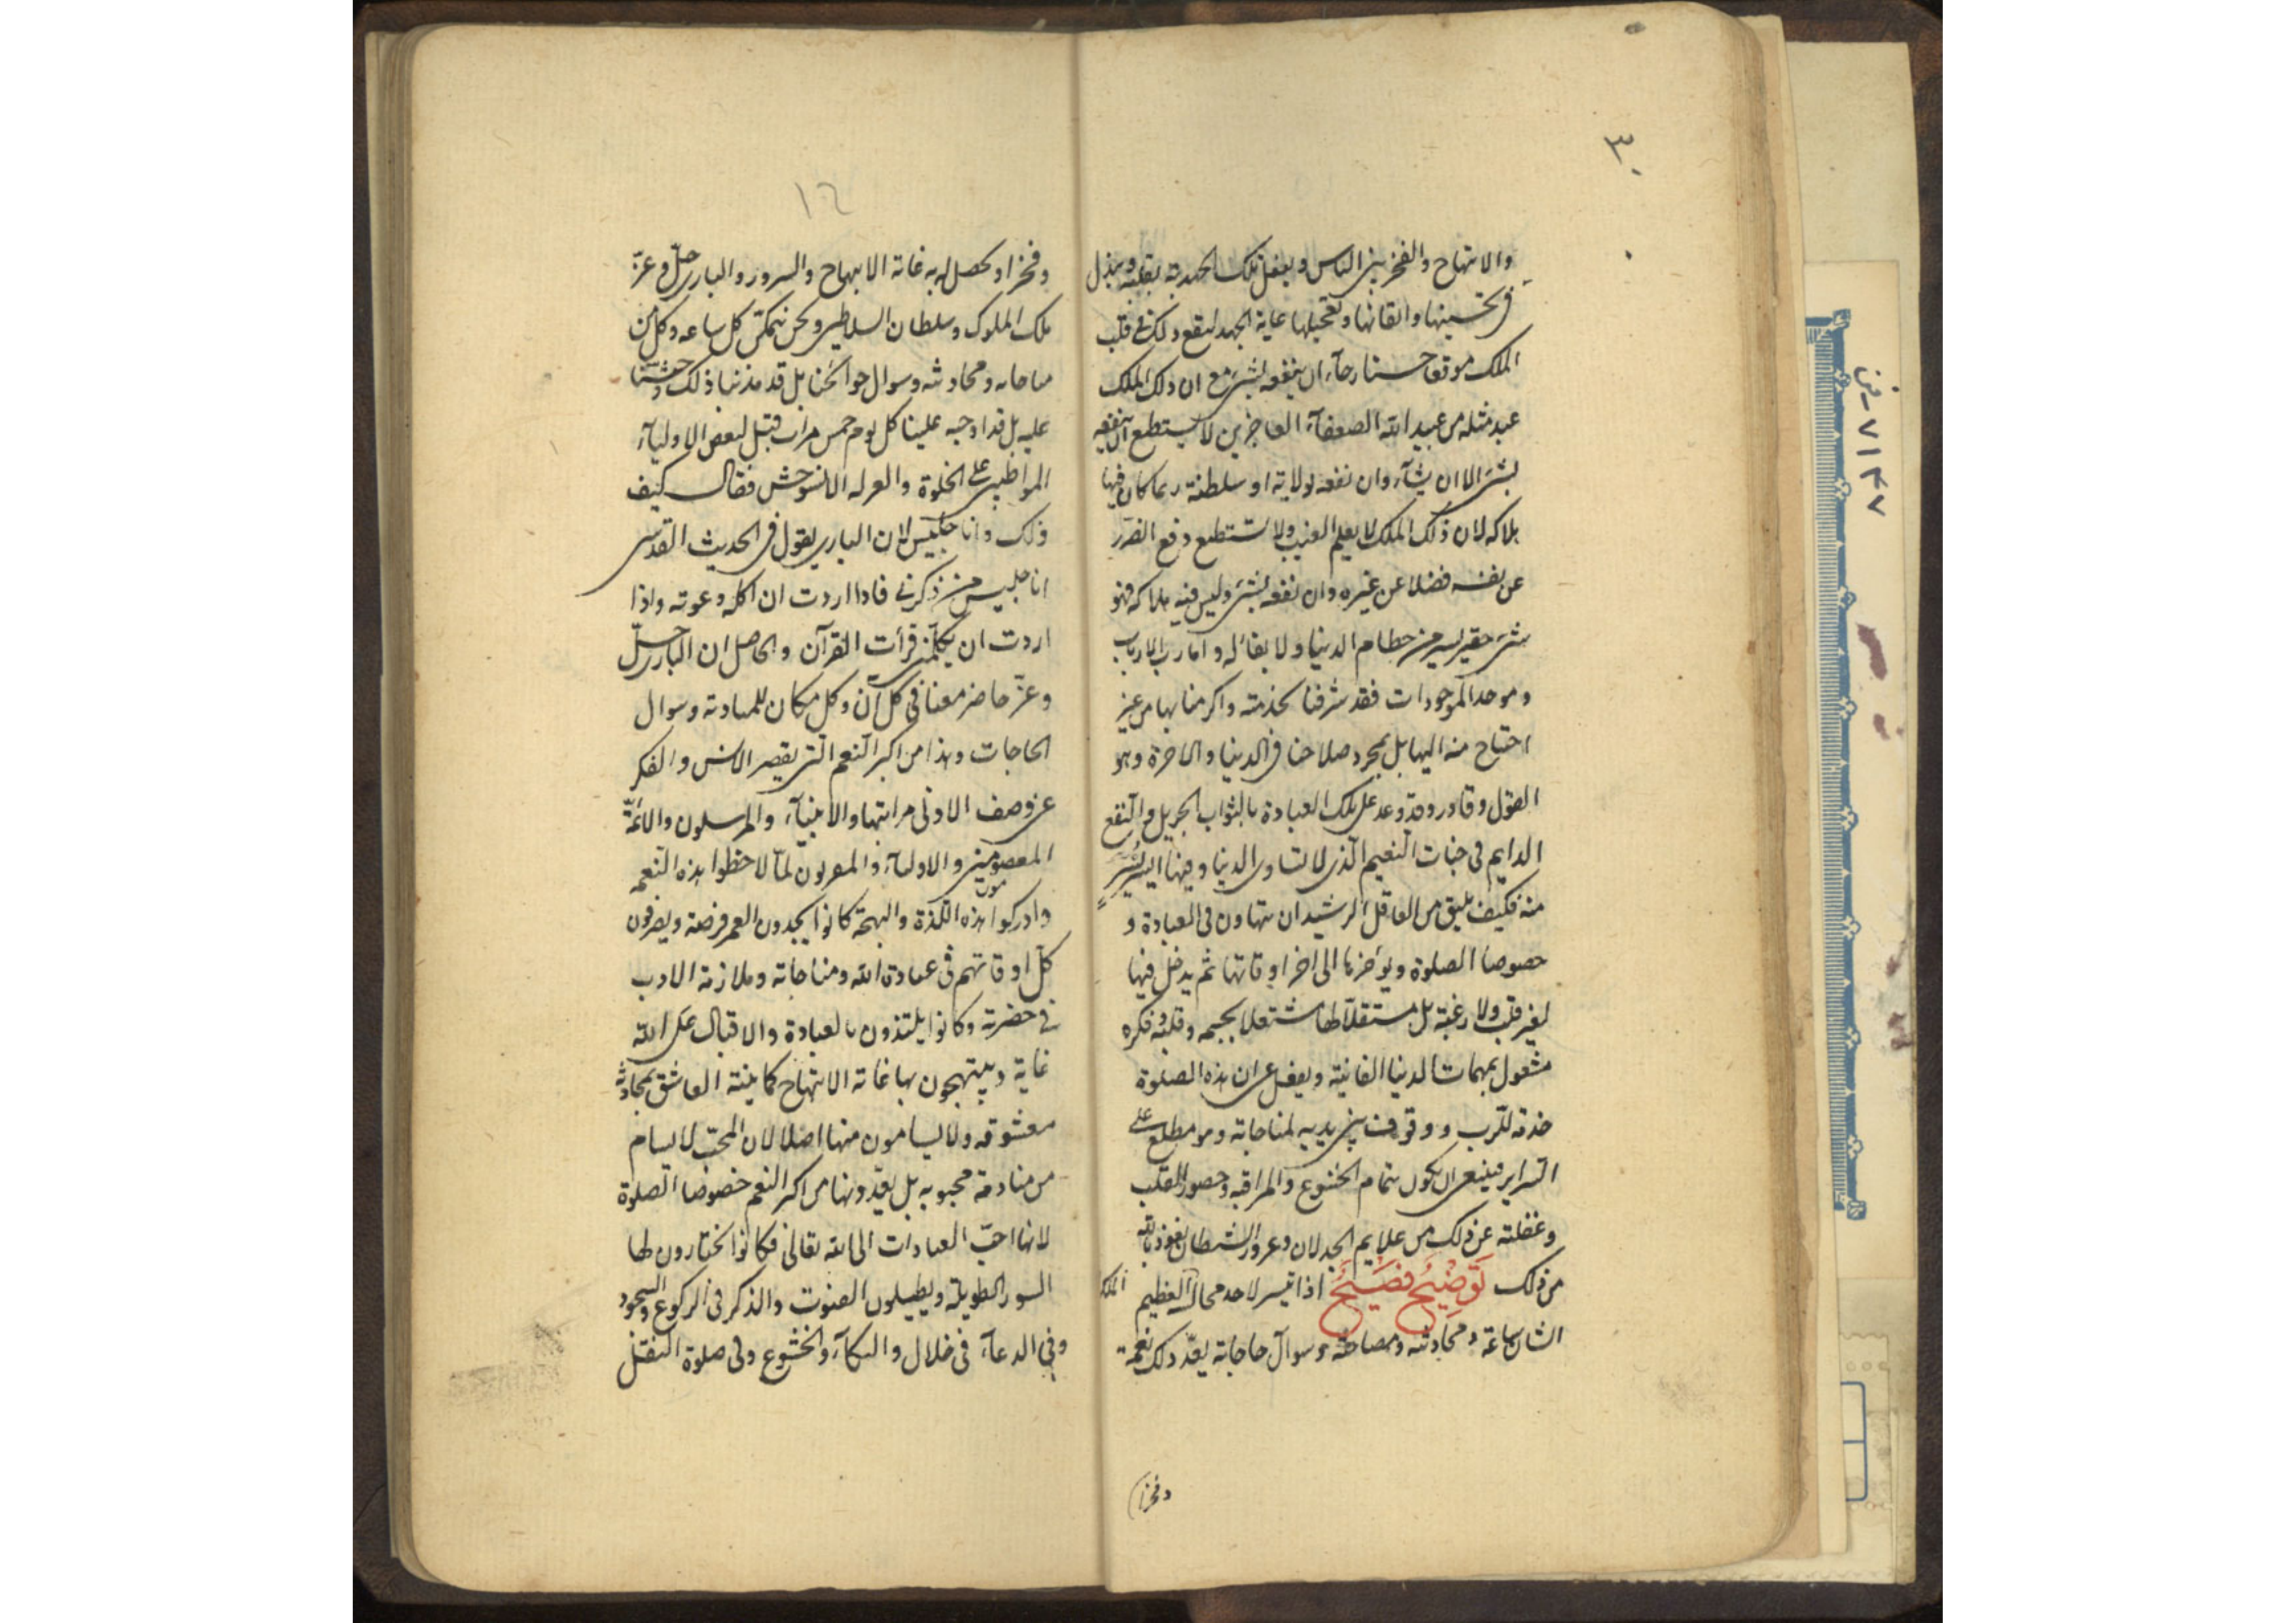 ٣٠
والابتهاج والفخر بين الناس ويفعل تلك الخدمة بقلبه ويبذل
في تحسينها واتقانها وتعجيلها غاية الجهد ليقع ذلك في قلب
الملك موقعا حسنا رجآء ان ينفعه بشئ مع ان ذلك الملك
عبد مثله من عبيد الله الضعفآء العاجزين لا يستطيع ان ينفعه
بشئ الا ان يشآء وان نفعه بولاية او سلطنة ربما كان فيها
هلاكه لان ذلك الملك لا يعلم الغيب ولا يستطيع دفع الضرر
عن نفسه فضلا عن غيره وان نفعه بشئ وليس فيه هلاكه فهو
شئ حقير يسير من حطام الدنيا ولا بقاء له واما رب الارباب
وموجد الموجودات فقد شرفنا بخدمته واكرمنا بها من غير
احتياج منه اليها بل بمجرد صلاحنا في الدنيا والاخرة وهو
وقادر وقد وعد على تلك العبادة بالثواب الجزيل والنفع
الدايم في جنات النعيم الذي لا تساوي الدنيا وفيها اليسير
منه فكيف يليق من العاقل الرشيد ان يتهاون في العبادة و
خصوصا الصلوة ويؤخرها الى اخر اوقاتها ثم يدخل فيها
بغير قلب ولا رغبة بل مستقلا لها مشتغلا بجسمه وقلبه وفكره
مشغول بمهمات الدنيا الفانية ويغفل عن ان هذه الصلوة
خدمة للرب ووقوف بين يديه لمناجاته وهو مطلع على
السراير فينبغي ان يكون بتمام الخشوع والمراقبة وحضور القلب
وغفلته عن ذلك من علايم الخذلان وغرور الشيطان نعوذ بالله
من ذلك توضيح فصيح اذا تيسر لاحد مجالس الملك العظيم
الشان ساعة ومحادثته ومصاحبته وسوال حاجاته يعد ذلك نعمة
وفخرا
١٦
وفخرا ويحصل له به غاية الابتهاج والسرور والباري جل وعز
ملك الملوك وسلطان السلاطين ونحن نتمكن كل ساعة وكل من
مناجاته ومحادثته وسوال حوائجنا بل قد ندبنا ذلك وحثنا
عليه بل قد اوجبه علينا كل يوم خمس مرات قيل لبعض الاوليآء
المواظبين على الخلوة والعزلة الا تستوحش فقال كيف
ذلك وانا جليس لان الباري يقول في الحديث القدسي
انا جليس من ذكرني فاذا اردت ان اكلمه دعوته واذا
اردت ان يكلمني قرأت القرآن والحاصل ان الباري جل
وعز حاضر معنا في كل آن وكل مكان للعبادة وسوال
الحاجات وهذا من اكبر النعم التي يقصر الانس والفكر
عن وصف الادنى مراتبها والانبيآء والمرسلون والائمة
المعصومين والاوليآء والمقربون لما لاحظوا هذه النعم
مون
وادركوا هذه اللذة والبهجة كانوا يجدون العمر فرصة ويصرفون
كل اوقاتهم في عبادة الله ومناجاته وملازمة الادب
في حضرته وكانوا يلتذون بالعبادة والاقبال على الله
غاية ويبتهجون بها غاية الابتهاج كما يلتذ العاشق بمحادثة
معشوقه ولا يسامون منها اصلا لان المحب لا يسام
من منادمة محبوبه بل يعدونها من اكبر النعم خصوصا الصلوة
لانها احب العبادات الى الله تعالى فكانوا يختارون لها
السور الطويلة ويطيلون القنوت والذكر في الركوع والسجود
وفي الدعآء في خلال والبكآء والخشوع وفي صلوة التنفل
٧١٤٧